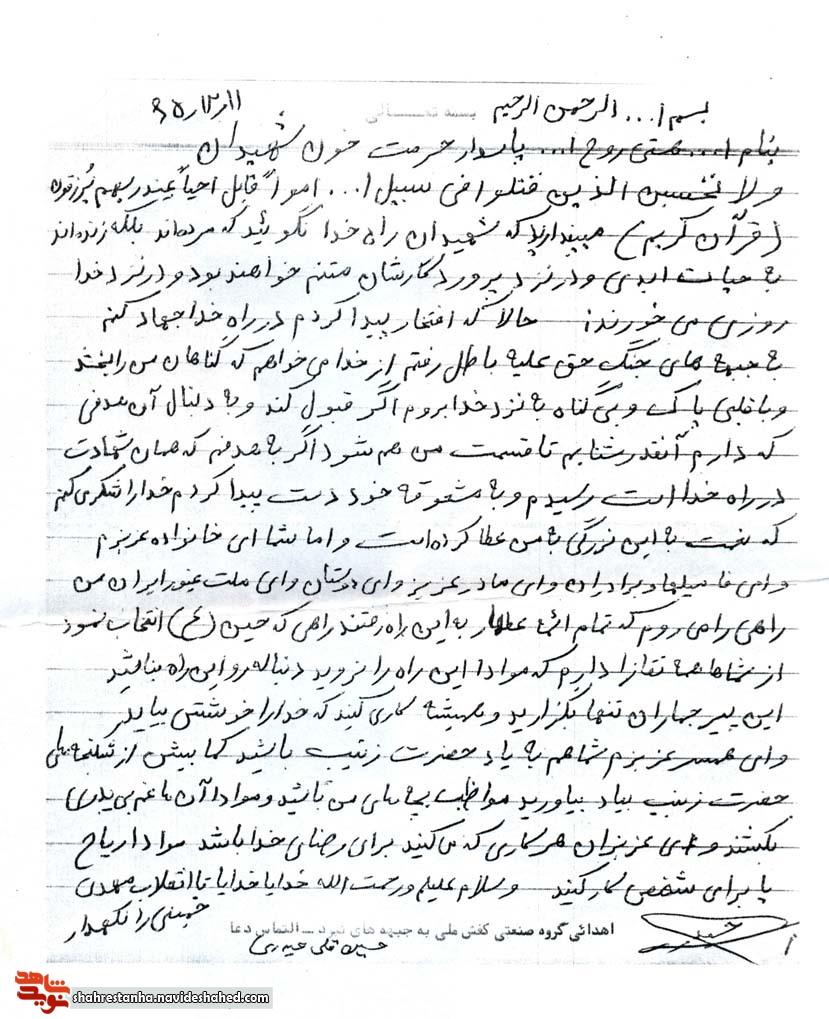 بسم ا... الرحمن الرحیم
بسمه تعالی
بنام ا... هستی روح ا... پاسدار حرمت خون شهیدان
ولا تحسبن الذین قتلو افی سبیل ا... امواً قابل احیاً عند ربهم یُرزقون
(قرآن کریم) مپیندارید که شهیدان راه خدا نگوئید که مرده‌اند بلکه زنده‌اند
به حیات ابدی و در نزد پروردگارشان متنعم خواهند بود و در نزد خدا
روزی می خورند: حالا که افتخار پیدا کردم در راه خدا جهاد کنم
به جبهه های جنگ حق علیه باطل رفتم از خدا می خواهم که گناهان من را ببخشد
و با قلبی پاک و بی گناه به نزد خدا بروم اگر قبول کند و به دنبال آن هدفی
که دارم آنقدر شتابم تا قسمت من هم شود اگر به هدفم که همان شهادت
در راه خدا است رسیدم و به معشوقه خود دست پیدا کردم خدا را شکر می کنم
که نعمت به این بزرگی به من عطا کرده است و اما شما ای خانواده عزیزم
و ای فامیلها و برادران و ای مادر عزیز و ای دوستان و ای ملت غیور ایران من
راهی را می روم که تمام ائمه اطهار به این راه رفتند راهی که حسین (ع) انتخاب نمود
از شماها همه تقازا دارم که موادا این راه را نروید دنباله رو این راه باشید
این پیر جماران تنها نگزارید و همیشه کاری کنید که خدارا خوشش بیاید
و ای همسر عزیزم شما هم به یاد حضرت زینب باشید کما بیش از شکنجه های
حضرت زینب بیاد بیاورید مواظب بچه های من باشید و موادا آن ها غم بی پدری
بکشند و ای عزیزان هر کاری که می کنید برای رضای خدا باشد موادا ریاح
یا برای شخص کار کنید وسلام علیکم ورحمت الله خدایا خدایا تا انقلاب مهدی
خمینی را نگهدار
اهدائی گروه صنعتی کفش ملی به جبهه های نبرد ــ التماس دعا
حسین قلی حیدری
شاهد
نوید
shahrestanha.navideshahed.com